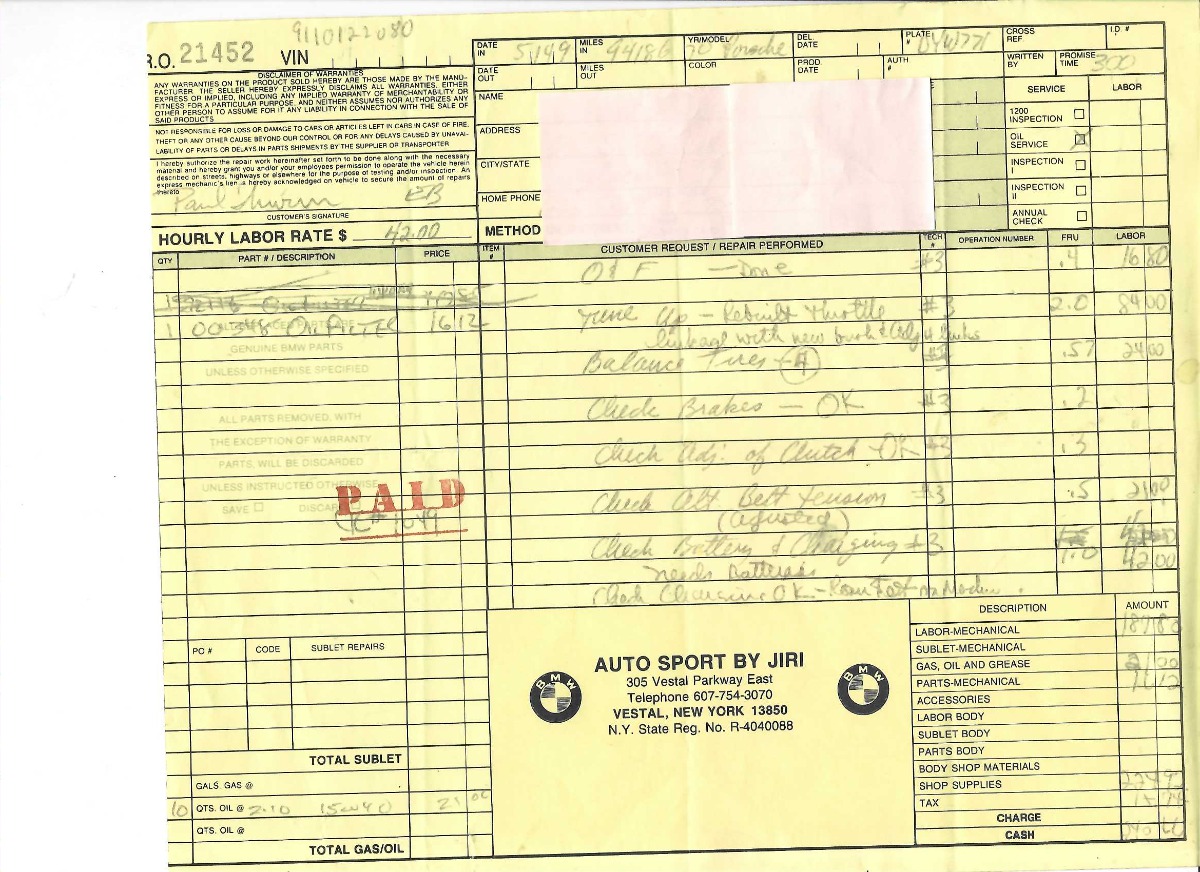 9110122080
R.O. 21452 VIN
DATE IN 5/4/9 MILES IN YR/MODEL 70 Porsche DEL. DATE PLATE # CROSS REF I.D. #
DATE OUT MILES OUT COLOR PROD. DATE AUTH. # WRITTEN BY PROMISE TIME 300
DISCLAIMER OF WARRANTIES
ANY WARRANTIES ON THE PRODUCT SOLD HEREBY ARE THOSE MADE BY THE MANU-
FACTURER. THE SELLER HEREBY EXPRESSLY DISCLAIMS ALL WARRANTIES, EITHER
EXPRESS OR IMPLIED, INCLUDING ANY IMPLIED WARRANTY OF MERCHANTABILITY OR
FITNESS FOR A PARTICULAR PURPOSE, AND NEITHER ASSUMES NOR AUTHORIZES ANY
OTHER PERSON TO ASSUME FOR IT ANY LIABILITY IN CONNECTION WITH THE SALE OF
SAID PRODUCTS
NOT RESPONSIBLE FOR LOSS OR DAMAGE TO CARS OR ARTICLES LEFT IN CARS IN CASE OF FIRE,
THEFT OR ANY OTHER CAUSE BEYOND OUR CONTROL OR FOR ANY DELAYS CAUSED BY UNAVAI-
LABILITY OF PARTS OR DELAYS IN PARTS SHIPMENTS BY THE SUPPLIER OF TRANSPORTER
I hereby authorize the repair work hereinafter set forth to be done along with the necessary
material and hereby grant you and/or your employees permission to operate the vehicle herein
described on streets, highways or elsewhere for the purpose of testing and/or inspection. An
express mechanic's lien is hereby acknowledged on vehicle to secure the amount of repairs
thereto
Paul
CUSTOMER'S SIGNATURE
HOURLY LABOR RATE $ 42.00
NAME
ADDRESS
CITY/STATE
HOME PHONE
METHOD
SERVICE LABOR
1200 INSPECTION
OIL SERVICE
INSPECTION I
INSPECTION II
ANNUAL CHECK
QTY PART # / DESCRIPTION PRICE ITEM # CUSTOMER REQUEST / REPAIR PERFORMED TECH # OPERATION NUMBER FRU LABOR
O & F — Done #3 .4 16 80
Tune Up — Rebuilt throttle #3 2.0 84 00
1 Oil Filter 16 12
linkage with new bush &
GENUINE BMW PARTS
Balance Tires - 4 .57 24 00
UNLESS OTHERWISE SPECIFIED
Check Brakes — OK #3 .2
ALL PARTS REMOVED, WITH
THE EXCEPTION OF WARRANTY
Check Adj. of Clutch - OK #3 .3
PARTS, WILL BE DISCARDED
UNLESS INSTRUCTED OTHERWISE
SAVE DISCARD
PAID
CK# 1049
Check Alt Belt tension #3 .5 21 00
(adjusted)
Check Battery & Charging #3 1.0 42 00
needs Batteries
Check Charging OK
PO # CODE SUBLET REPAIRS
TOTAL SUBLET
GALS. GAS @
10 QTS. OIL @ 2.10 15W40 21 00
QTS. OIL @
TOTAL GAS/OIL
BMW
AUTO SPORT BY JIRI
305 Vestal Parkway East
Telephone 607-754-3070
VESTAL, NEW YORK 13850
N.Y. State Reg. No. R-4040088
BMW
DESCRIPTION AMOUNT
LABOR-MECHANICAL 187 80
SUBLET-MECHANICAL
GAS, OIL AND GREASE 21 00
PARTS-MECHANICAL 16 12
ACCESSORIES
LABOR BODY
SUBLET BODY
PARTS BODY
BODY SHOP MATERIALS
SHOP SUPPLIES 224 92
TAX
CHARGE
CASH